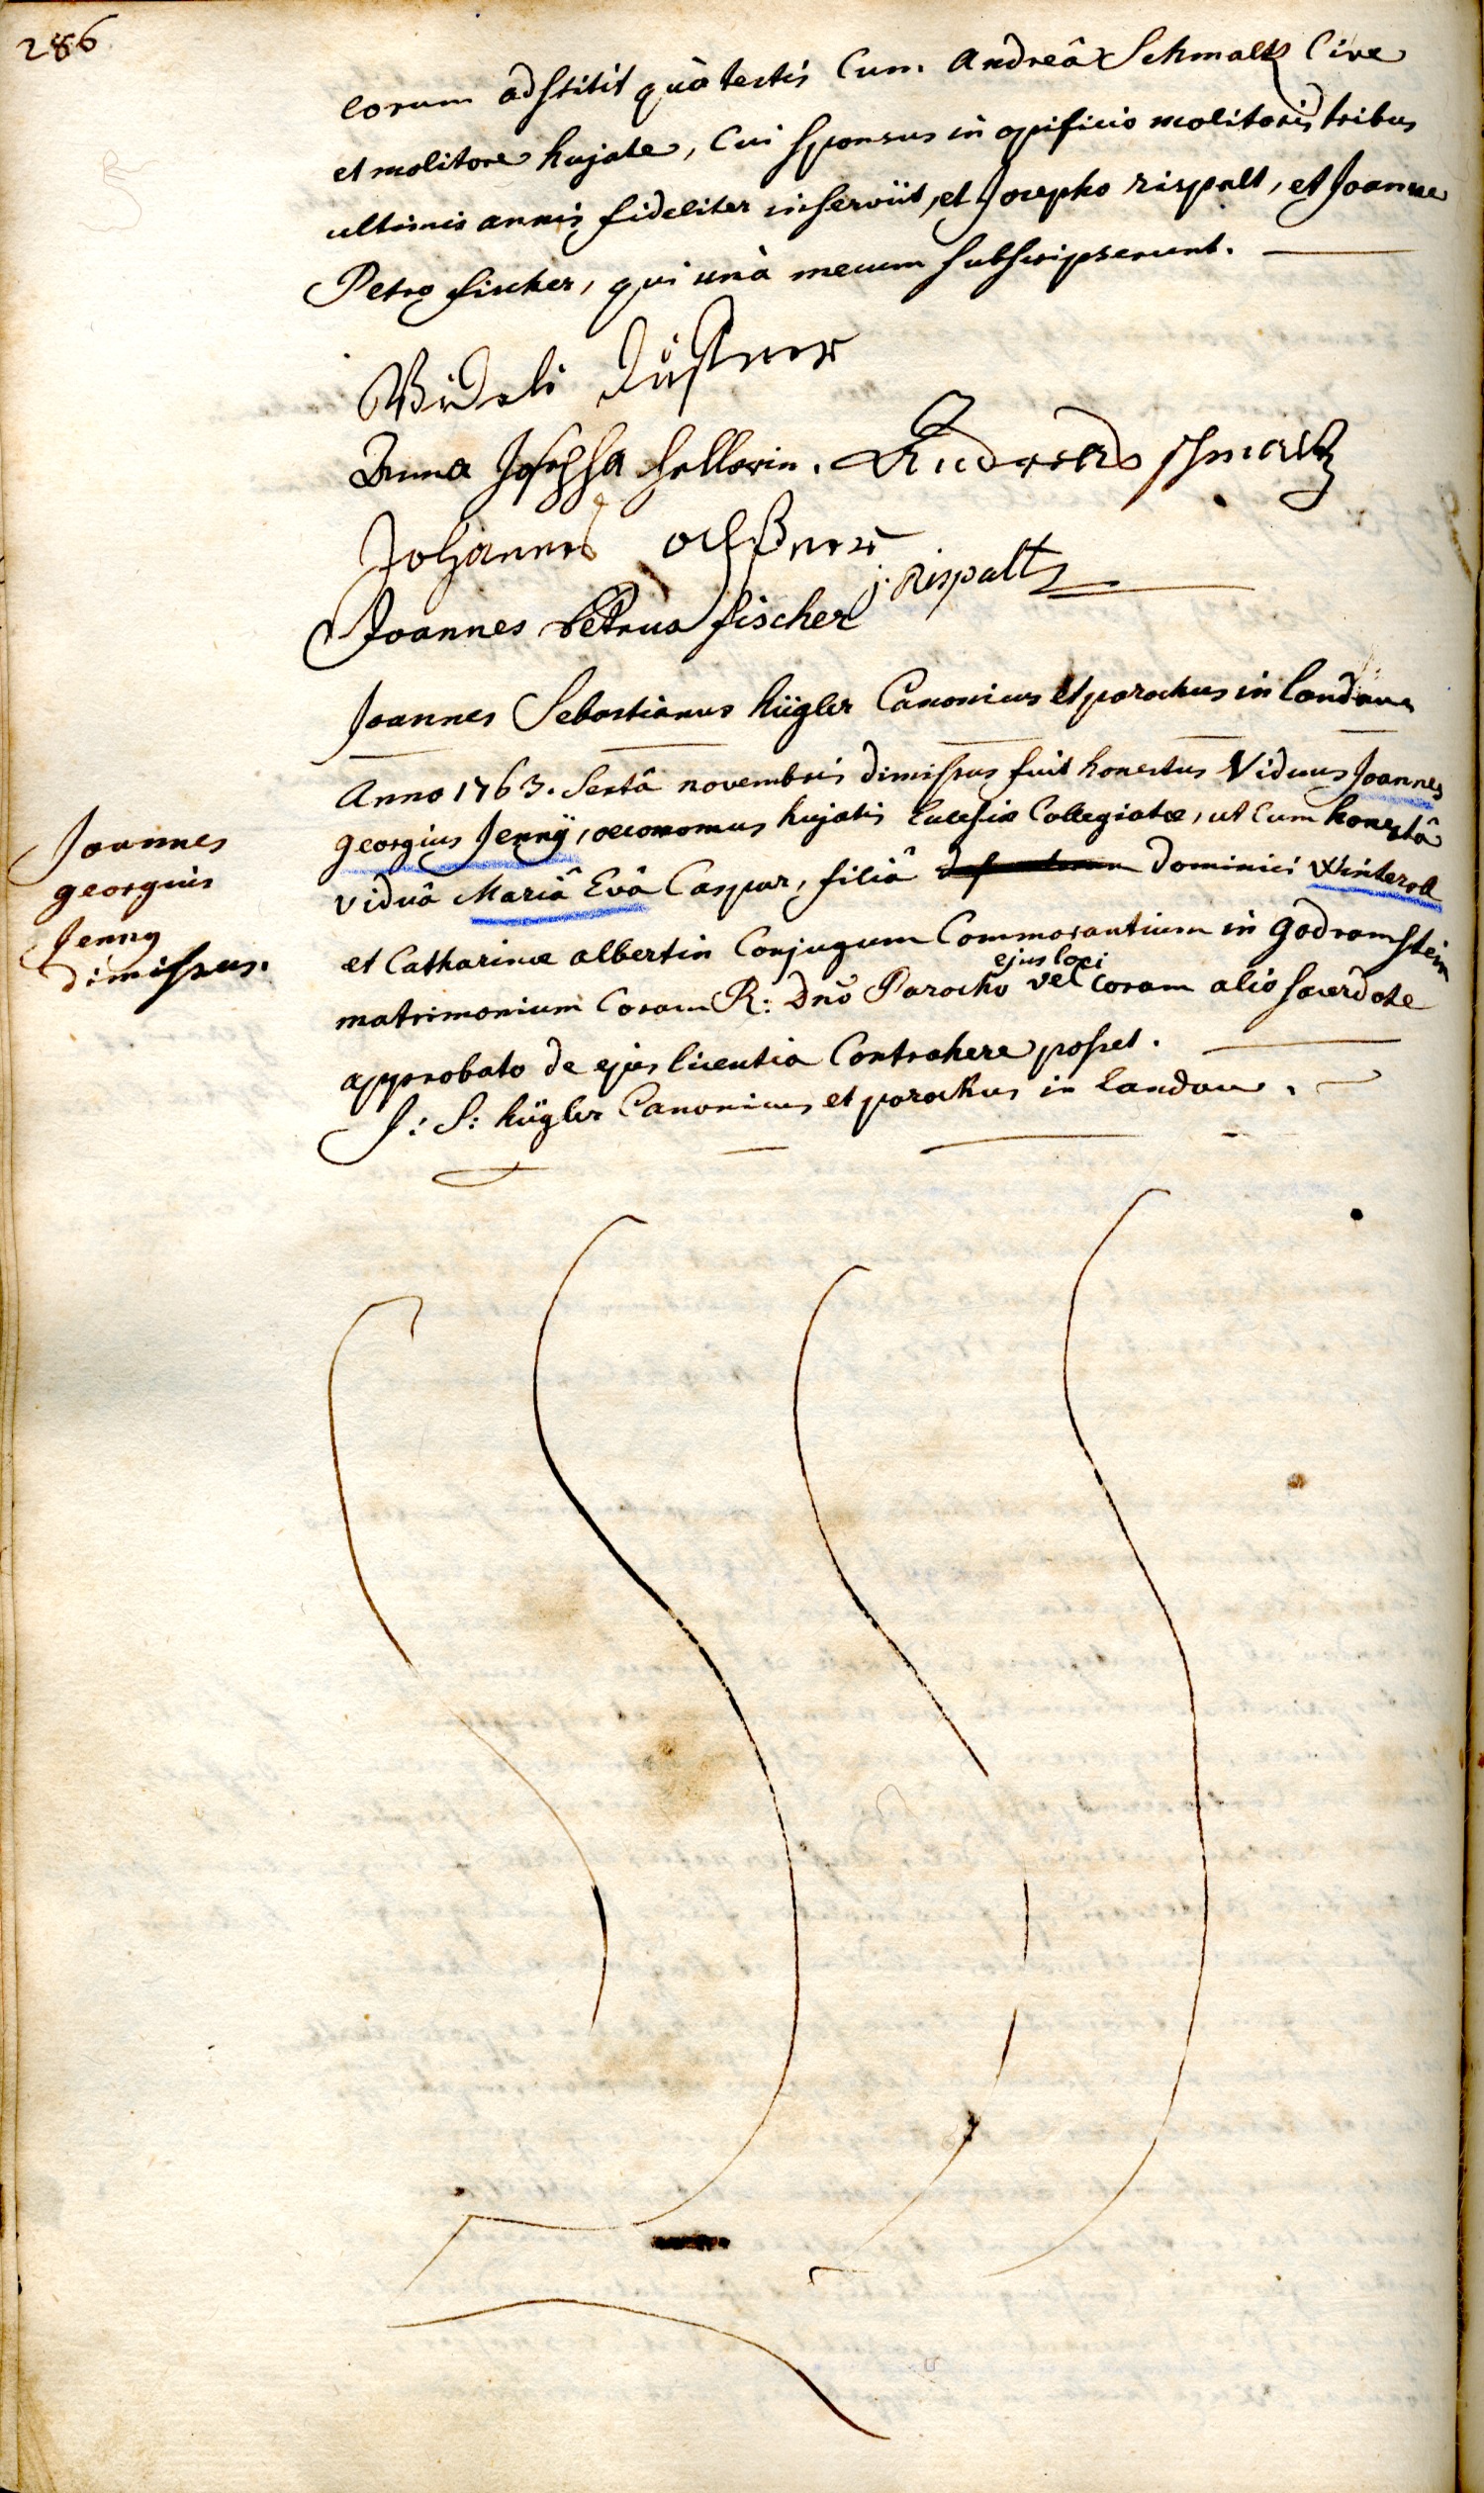 286
eorum adstitit quà testis Cum Andreâ Schmaltz Cive
et molitore hujate, Cui Sponsus in opificio molitoris tribus
ultimis annis fideliter inserviit, et Josepho rispalt, et Joanne
Petro fischer, qui unà mecum subscripserunt.
Anna Josepha hellerin. Andreas schmaltz
Johannes
j. Rispalt
Joannes Petrus fischer
Joannes Sebastianus hügler Canonicus et parochus in landau
Joannes
georgius
Jenny
dimissus.
Anno 1763. Sextâ novembris dimissus fuit honestus Viduus Joannes
georgius Jennÿ, oeconomus hujatis Ecclesiæ Collegiatæ, ut Cum honestâ
viduâ Mariâ Evâ Caspar, filiâ Dominici Winteroll
et Catharinæ albertin Conjugum Commorantium in godramstein
matrimonium Coram R: Dnō Parocho ejus loci vel coram alio sacerdote
approbato de ejus licentia Contrahere posset.
J: S: hügler Canonicus et parochus in landau.